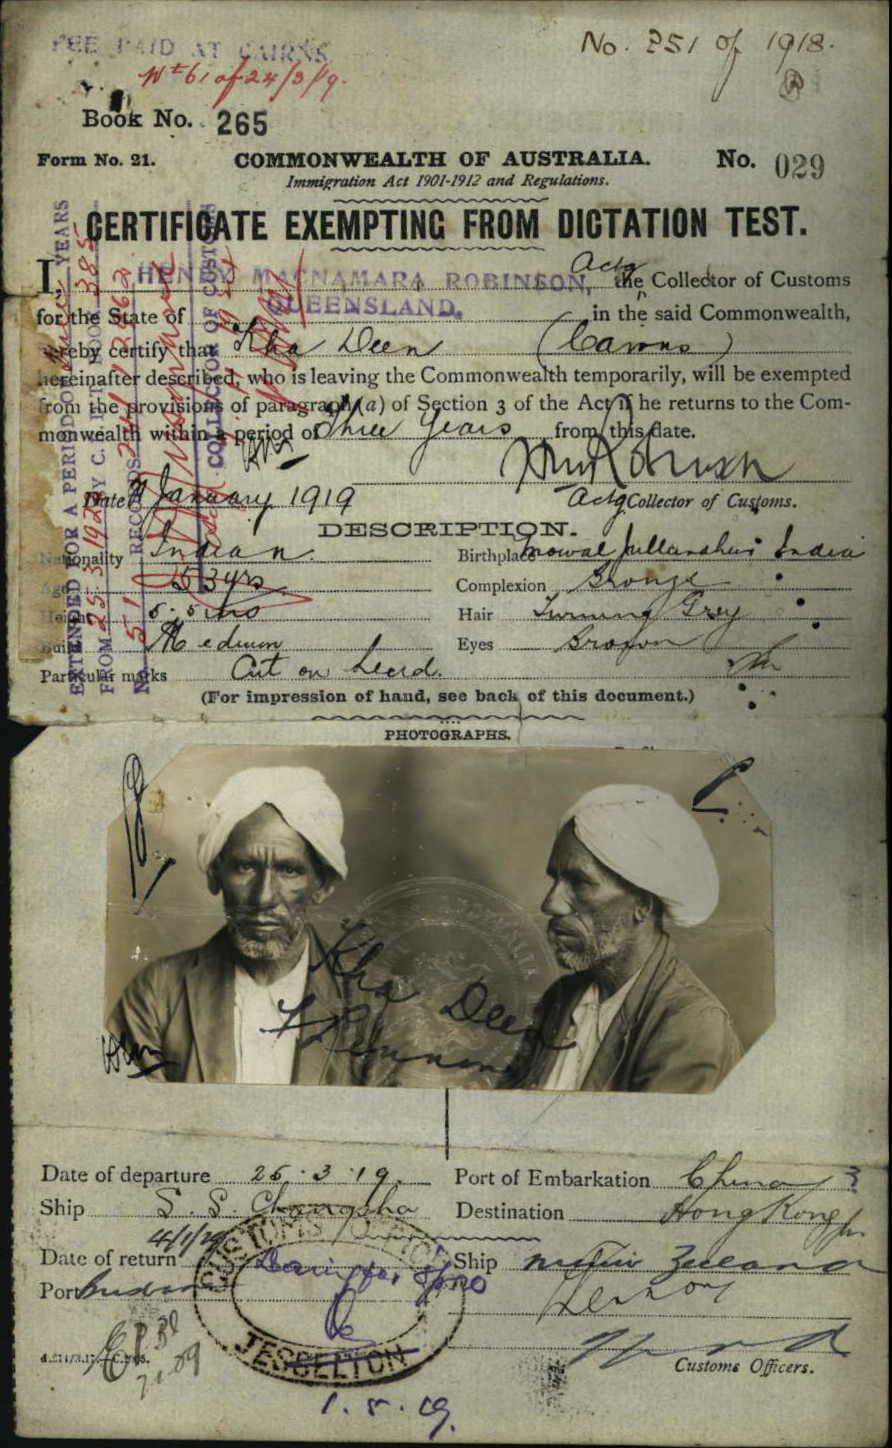 FEE PAID AT CAIRNS
No. 251 of 1918.
No 61 of 24/3/19.
Book No. 265
Form No. 21. COMMONWEALTH OF AUSTRALIA. No. 029
Immigration Act 1901-1912 and Regulations.
CERTIFICATE EXEMPTING FROM DICTATION TEST.
I, HENRY MACNAMARA ROBINSON, Actg the Collector of Customs
for the State of QUEENSLAND. in the said Commonwealth,
hereby certify that Kha Deen (Cairns)
hereinafter described, who is leaving the Commonwealth temporarily, will be exempted
from the provisions of paragraph (a) of Section 3 of the Act if he returns to the Com-
monwealth within a period of three years from this date.
Date January 1919 Actg Collector of Customs.
DESCRIPTION.
Nationality Indian. Birthplace Jullundur India
Age 53 yrs Complexion Bronze
Height 5. 5 ins Hair Turning Grey
Build Medium Eyes Brown
Particular marks Cut on head.
(For impression of hand, see back of this document.)
EXTENDED FOR A PERIOD OF YEARS
FROM 25.3.192 BY C. & T. BOOK 385
No. 51 RECORDS
COLLECTOR OF CUSTOMS
PHOTOGRAPHS.
Kha Deen
Date of departure 25.3.19. Port of Embarkation China
Ship S.S. Changsha Destination Hong Kong
Date of return 4/1/29 Ship
Port
CUSTOMS
JESSELTON
Customs Officers.
1.5.19.